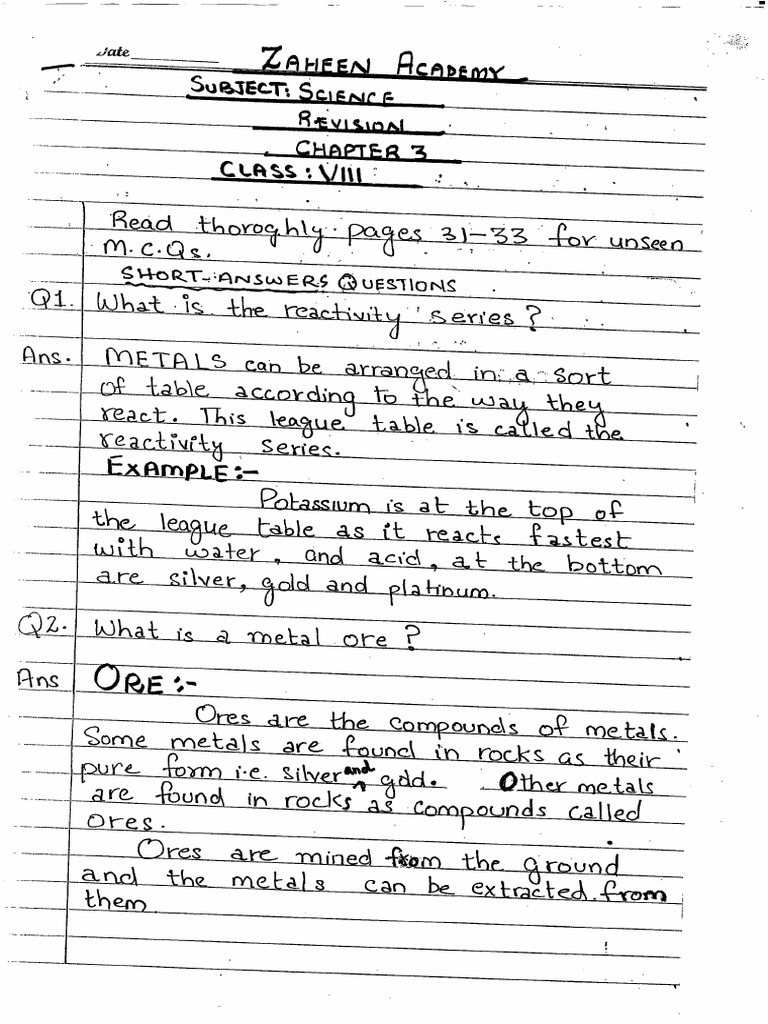 Date
ZAHEEN ACADEMY
SUBJECT: SCIENCE
REVISION
CHAPTER 3
CLASS: VIII
Read thoroghly pages 31-33 for unseen
M.C.Qs.
SHORT-ANSWERS QUESTIONS
Q1. What is the reactivity series?
Ans. METALS can be arranged in a sort
of table according to the way they
react. This league table is called the
reactivity series.
EXAMPLE:-
Potassium is at the top of
the league table as it reacts fastest
with water, and acid, at the bottom
are silver, gold and platinum.
Q2. What is a metal ore?
Ans ORE:-
Ores are the compounds of metals.
Some metals are found in rocks as their
pure form i.e. silver and gold. Other metals
are found in rocks as compounds called
ores.
Ores are mined from the ground
and the metals can be extracted from
them